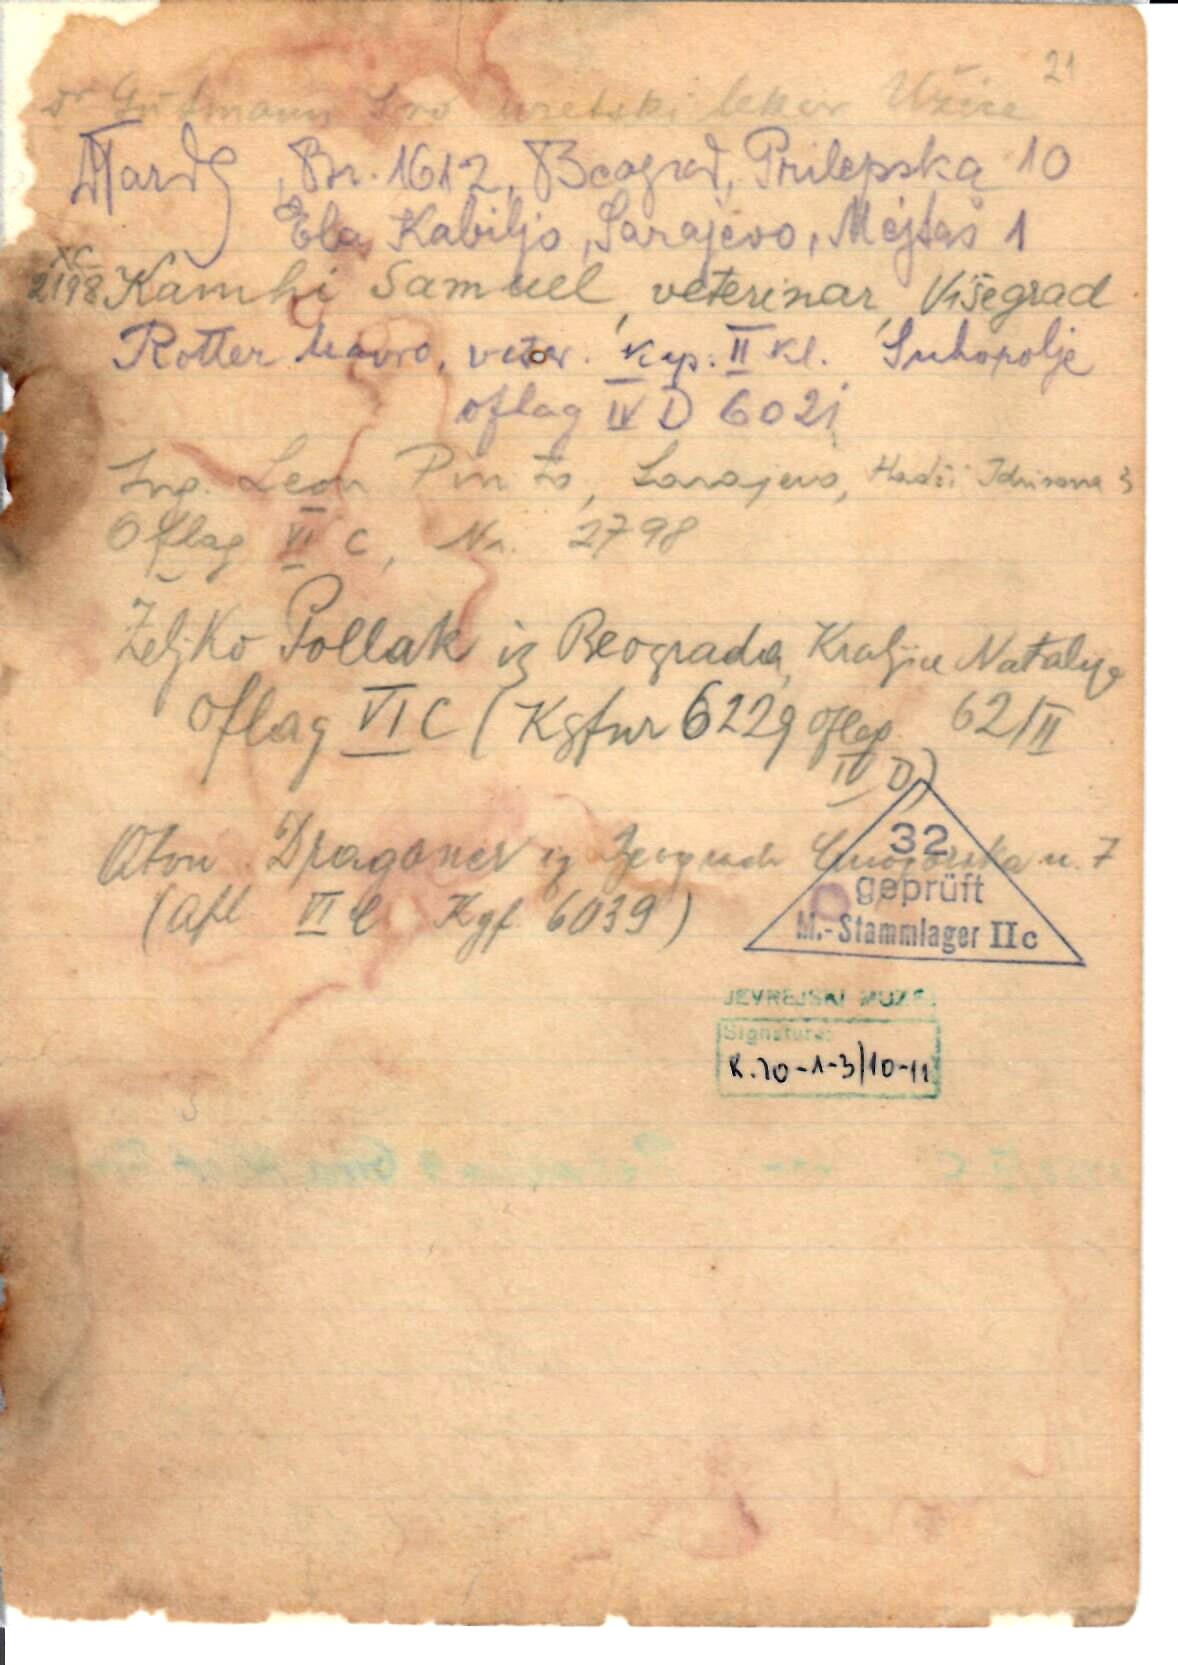 21
Dr Gutmann Ivo sretski lekar Užice
, Br. 1612, Beograd, Prilepska 10
Ela Kabiljo, Sarajevo, Mejtaš 1
XC
2198 Kamhi Samuel, veterinar, Višegrad
Rotter Mavro, veter. kap. II kl. Suhopolje
oflag IV D 6021
Ing. Leon Pinto, Sarajevo, Hadži Idrisova 3
Oflag VI C, Nr. 2798
Željko Pollak iz Beograda, Kraljice Natalije
Oflag VI C (Kgfnr 6229 Oflag 62/II
IV D)
Oton Draganer iz Beograda Crnogorska u. 7
(Ofl VI C Kgf. 6039)
32
geprüft
M.-Stammlager IIc
JEVREJSKI MUZEJ
Signatura:
K.20-1-3/10-11